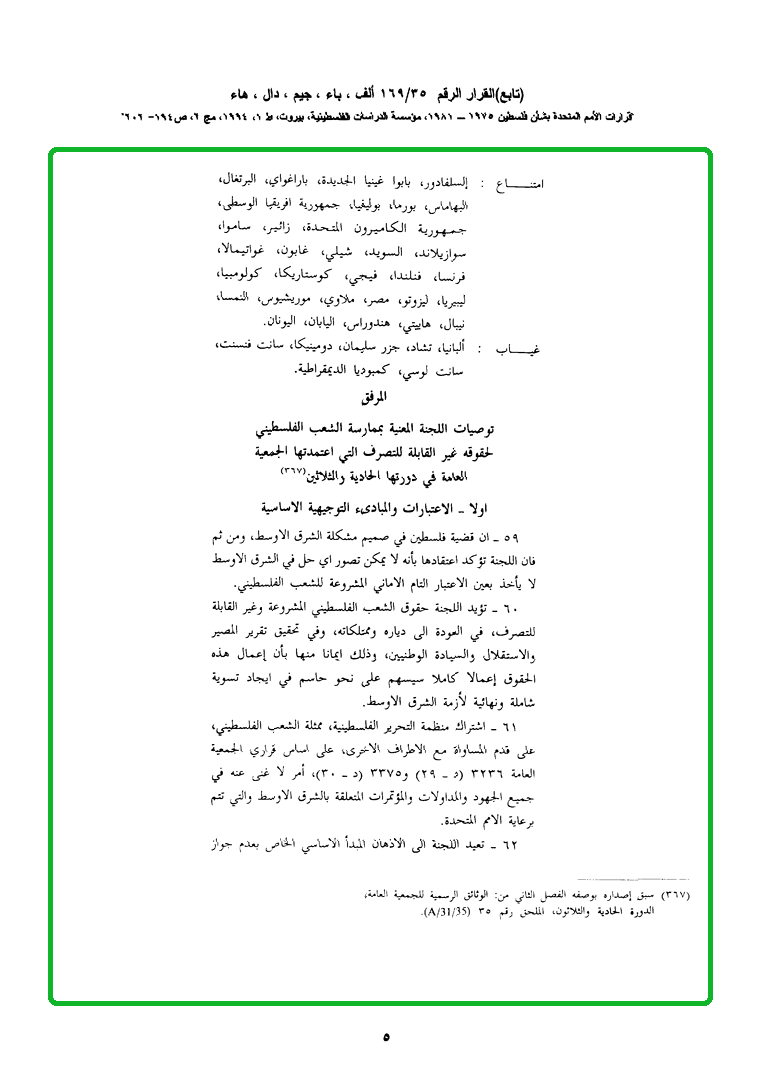 (تابع)القرار الرقم ١٦٩/٣٥ ألف ، باء ، جيم ، دال ، هاء
قرارات الأمم المتحدة بشأن فلسطين ١٩٧٥ – ١٩٨١، مؤسسة الدراسات الفلسطينية، بيروت، ط ١، ١٩٩٤، مج ٢، ص١٩٤- ٢٠٦
امتنـــــاع : إلسلفادور، بابوا غينيا الجديدة، باراغواي، البرتغال،
البهاماس، بورما، بوليفيا، جمهورية افريقيا الوسطى،
جمهورية الكاميرون المتحدة، زائير، ساموا،
سوازيلاند، السويد، شيلي، غابون، غواتيمالا،
فرنسا، فنلندا، فيجي، كوستاريكا، كولومبيا،
ليبيريا، ليزوتو، مصر، ملاوي، موريشيوس، النمسا،
نيبال، هاييتي، هندوراس، اليابان، اليونان.
غيـــــاب : ألبانيا، تشاد، جزر سليمان، دومينيكا، سانت فنسنت،
سانت لوسي، كمبوديا الديمقراطية.
المرفق
توصيات اللجنة المعنية بممارسة الشعب الفلسطيني
لحقوقه غير القابلة للتصرف التي اعتمدتها الجمعية
العامة في دورتها الحادية والثلاثين(٣٦٧)
اولا ـ الاعتبارات والمبادىء التوجيهية الاساسية
٥٩ ـ ان قضية فلسطين في صميم مشكلة الشرق الاوسط، ومن ثم
فان اللجنة تؤكد اعتقادها بأنه لا يمكن تصور اي حل في الشرق الاوسط
لا يأخذ بعين الاعتبار التام الاماني المشروعة للشعب الفلسطيني.
٦٠ ـ تؤيد اللجنة حقوق الشعب الفلسطيني المشروعة وغير القابلة
للتصرف، في العودة الى دياره وممتلكاته، وفي تحقيق تقرير المصير
والاستقلال والسيادة الوطنيين، وذلك ايمانا منها بأن إعمال هذه
الحقوق إعمالا كاملا سيسهم على نحو حاسم في ايجاد تسوية
شاملة ونهائية لأزمة الشرق الاوسط.
٦١ ـ اشتراك منظمة التحرير الفلسطينية، ممثلة الشعب الفلسطيني،
على قدم المساواة مع الاطراف الاخرى، على اساس قراري الجمعية
العامة ٣٢٣٦ (د ـ ٢٩) و٣٣٧٥ (د ـ ٣٠)، أمر لا غنى عنه في
جميع الجهود والمداولات والمؤتمرات المتعلقة بالشرق الاوسط والتي تتم
برعاية الامم المتحدة.
٦٢ ـ تعيد اللجنة الى الاذهان المبدأ الاساسي الخاص بعدم جواز
(٣٦٧) سبق إصداره بوصفه الفصل الثاني من: الوثائق الرسمية للجمعية العامة،
الدورة الحادية والثلاثون، الملحق رقم ٣٥ (A/31/35).
٥